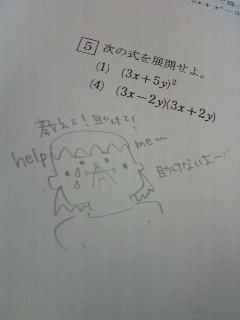 5 次の式を展開せよ。
(1) (3x+5y)²
(4) (3x-2y)(3x+2y)
教えて!助けて!
help me〜